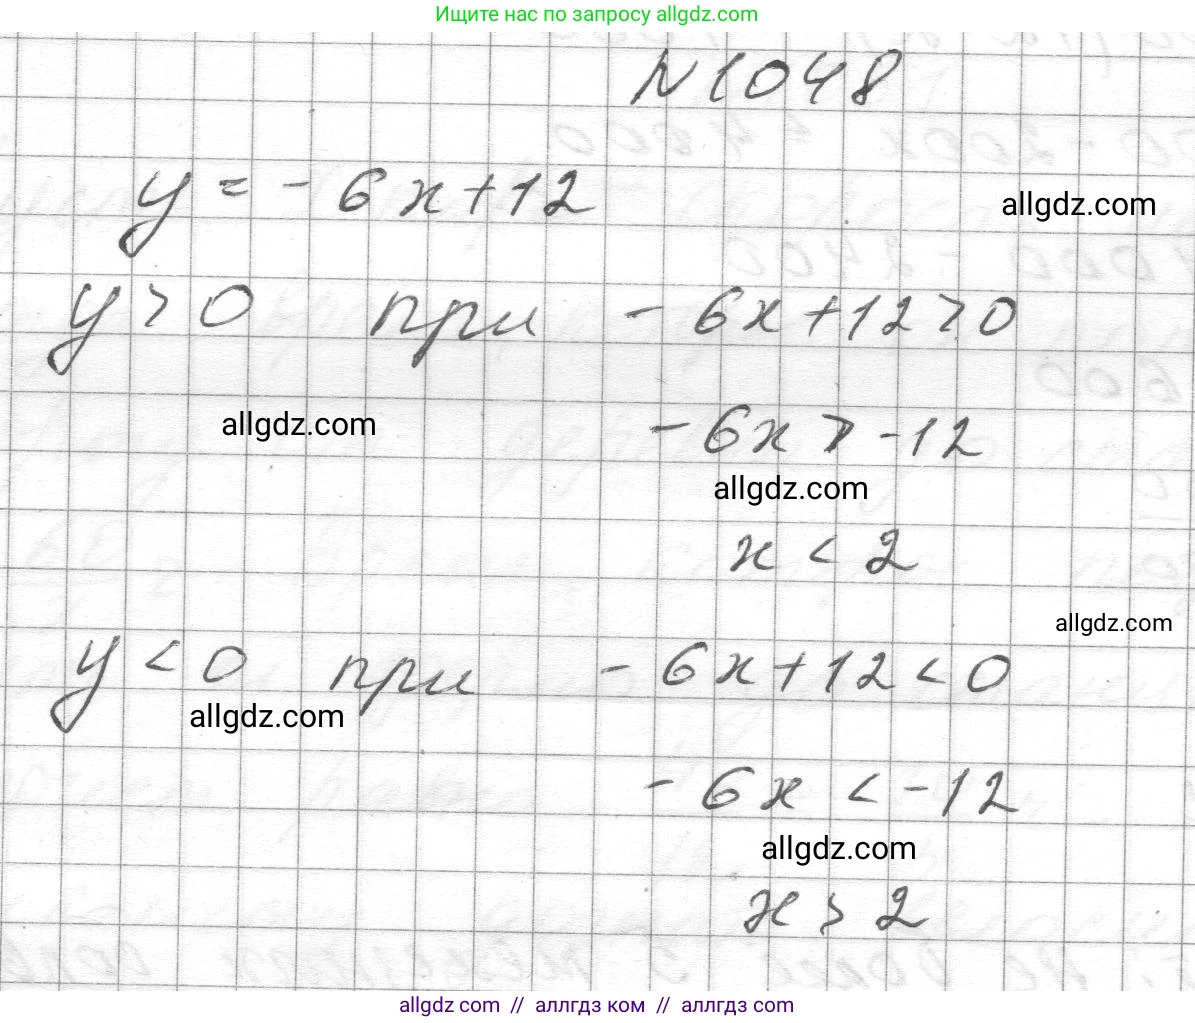 Ищите нас по запросу allgdz.com
N1048
y = - 6x+12
allgdz.com
y > 0 при - 6x+12>0
allgdz.com
- 6x > -12
allgdz.com
x < 2
allgdz.com
y < 0 при - 6x+12<0
allgdz.com
- 6x < -12
allgdz.com
x > 2
allgdz.com // аллгдз ком // аллгдз com